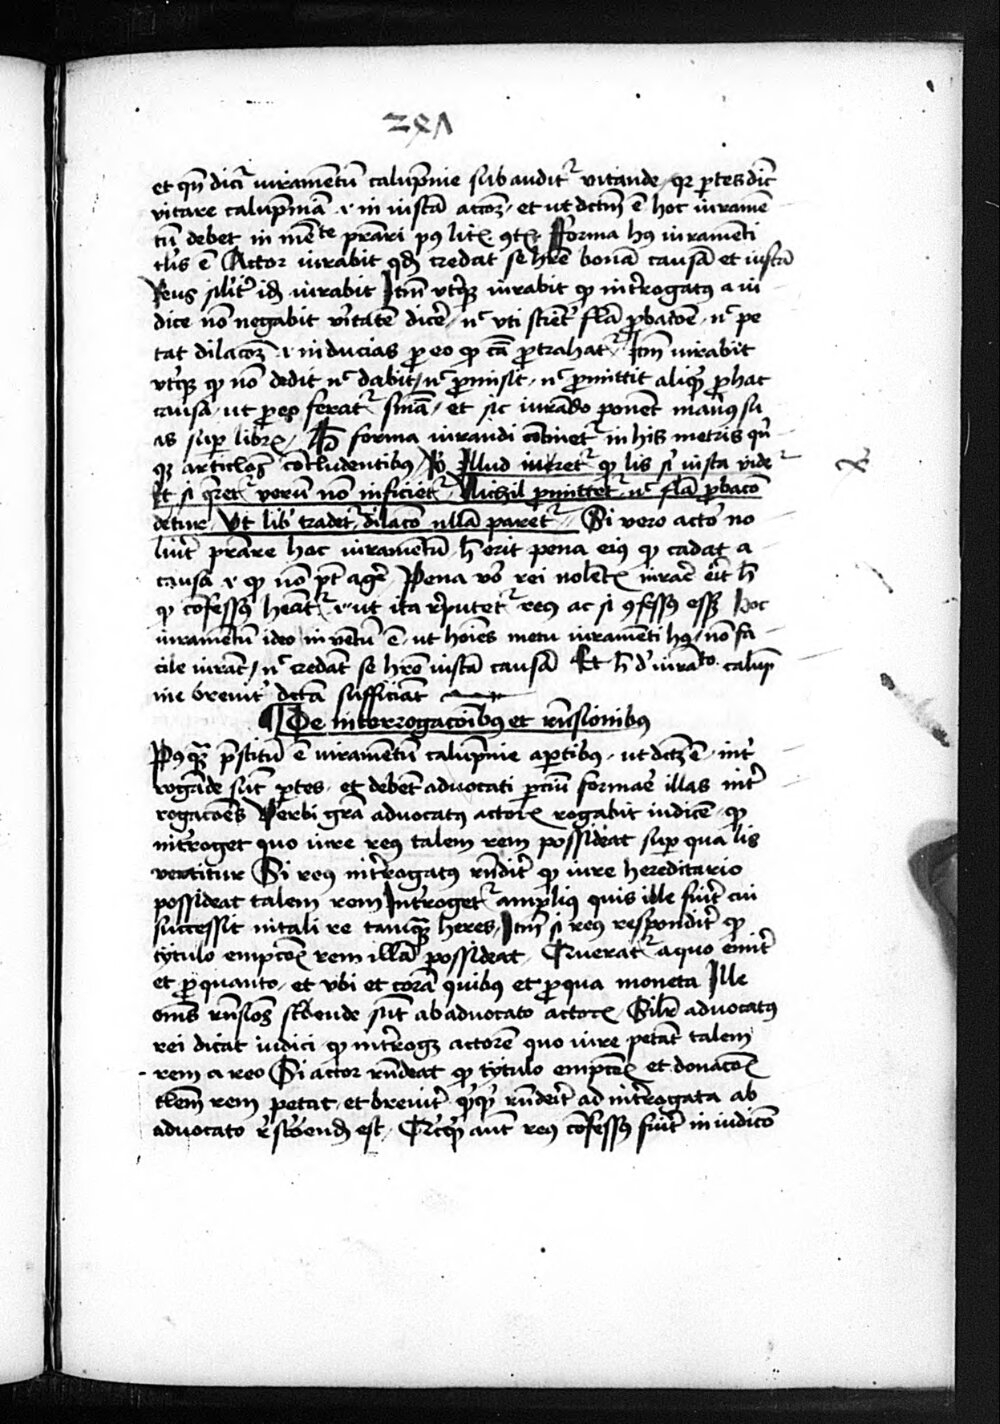 et qn̄ dicr̄ iuramentū calupnie subauditr̄ vitande qr ptes dn̄t
vitare calupniā i iniustā accōꝫ et ut dctm̄ ē hoc iuramē
tū debet in inēte prārı pꝰ litꝭ ꝯtꝭ Forma hꝰ iuramenti
tlis ē Actor iurabit qd̓ credat se hr̄e bonā causā et iustā
Reus silr̄ id̓ iurabit Itm̄ vtqꝫ iurabit qͦ int̓rogatꝰ a iu
dice nō negabit v̓itatē dice̓ nͨ vti scient̓ flā pbacōe nͨ pe
tat dilacōꝫ i inducias p eo qͦ cā ptrahatr̄ Itm̄ iurabit
vtqꝫ qͦ nō dedit nͨ dabit nͨ pmisit nͨ pmittit aliqͥ p hac
causa ut p eo feratr̄ sn̄iā et sic iurādo ponēt manꝰ su
as sup librꝭ H̄ forma iurandi cōtinetr̄ in his metris qn̓
qꝫ articlōꝫ cōcludentibꝰ Illud iuretr̄ qͦ lis sͥ iusta videtr̄
Et si q̓retr̄ verū nō inficietr̄ Nichil pmittetr̄ nͨ flā pbacō
detur Ut lis tradetr̄ dilacō nulla paretr̄ Si vero actor no
lūit prārē hoc iuramentū h̄ erit pena eiꝰ qͦ cadat a
causa i qͦ nō pt̄ age̓ Pena vͦ rei nolētꝭ iurare erit h̄
qͦ cōfessꝰ heātr̄ i ut ita r̓putetr̄ reꝰ ac si ꝯfessꝰ esset Hoc
iuramentū ideo inventū ē ut hoīes metu iuramenti hꝰ nō fa
cile iurāt nͨ credāt se hr̄e iustā causā Et h̄ d̓ iurāto calup
nie brevit̓ dcta sufficiāt
De interrogacōibꝰ et rn̄sionibꝰ
Pꝰqꝫ p̄stitū ē iuramentū calupnie a ptibꝰ ut dctꝫ ē int̓
rogāde sūt ptes et debēt advocati pciū formaē illas int̓
rogacōēs Verbi gr̄a advocatꝰ actorꝭ rogabit iudicē qͦ
int̓roget quo iure reꝰ talem rem possideat sup qua lis
vertitur Si reꝰ int̓rogatꝰ rn̄dit̓ qͦ iure hereditario
possideat talem rem Int̓rogetr̄ ampliꝰ quis ille fuit̓ cui
successit in tali re tanqꝫ heres Itm̄ si reꝰ respondit̓ qͦ
tytulo empcōꝭ rem illā possideat Queratr̄ a quo emit̓
et p quanto et vbi et corā quibꝰ et p qua moneta Ille
om̄s rn̄sioēs scͥbende sūt ab advocato actorꝭ Silr̄ advocatꝰ
rei dicat iudici qͦ int̓rogꝫ actorē quo iure petat talem
rem a reo Si actor rn̄deat qͦ tytulo empcōꝭ et donacōꝭ
tlem rem petat et brevit̓ qͥcqͥ rn̄derit̓ ad int̓rogata ab
advocato r̓scͥbend̓ est Qn̄cqꝫ aut̄ reꝰ cōfessꝰ fuit̓ in iudicō